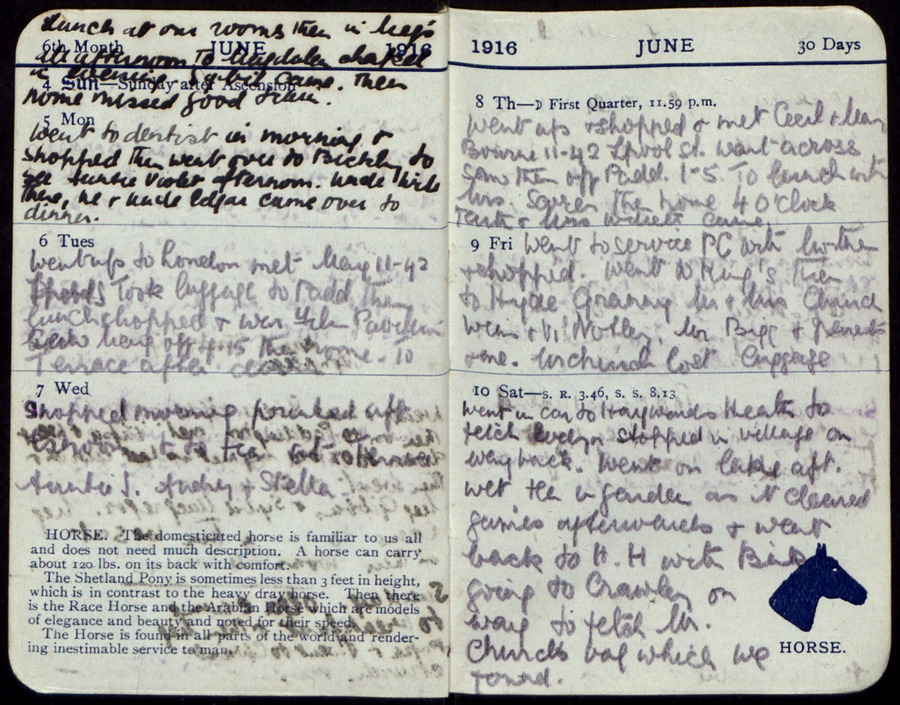 Lunch at our rooms then in
6th Month JUNE 1916
all afternoon To Magdalen chapel
in evening. Sybil came. Then
4 Sun—Sunday after Ascension
home missed good train.
5 Mon
Went to dentist in morning &
Shopped Then went over to Bickley to
see Auntie Violet afternoon. Uncle
there, he & Uncle Edgar came over to
dinner.
6 Tues
Went up to London met Mary 11-42
Took luggage to Padd. Then
lunch shopped & was
Mary off 4-15 Then home. To
Terrace after
7 Wed
Shopped morning aft.
to Tea
Auntie J. Audrey & Stella.
HORSE. The domesticated horse is familiar to us all
and does not need much description. A horse can carry
about 120 lbs. on its back with comfort.
The Shetland Pony is sometimes less than 3 feet in height,
which is in contrast to the heavy dray horse. Then there
is the Race Horse and the Arabian Horse which are models
of elegance and beauty and noted for their speed.
The Horse is found in all parts of the world and render-
ing inestimable service to man.
1916 JUNE 30 Days
8 Th—☽ First Quarter, 11.59 p.m.
Went up & shopped & met Cecil & Mary
Bourne 11-42 Lpool St. Went across
saw them off Padd. 1-5. To lunch with
Mrs. Then home 4 O'clock
& Mrs came.
9 Fri Went to service PC with Mother
& shopped. Went to King's Then
to Hyde Granny Mr & Mrs Church
Win & Vi Mr Bigg &
& me. Mr Church lost luggage
10 Sat—S. R. 3.46, S. S. 8.13
Went in car to Haywards Heath to
fetch Evelyn stopped in village on
way back. Went on lake aft.
wet tea in garden as it cleared
games afterwards & went
back to H. H with
going to Crawley on
way to fetch Mr.
Church's bag which we
found.
HORSE.